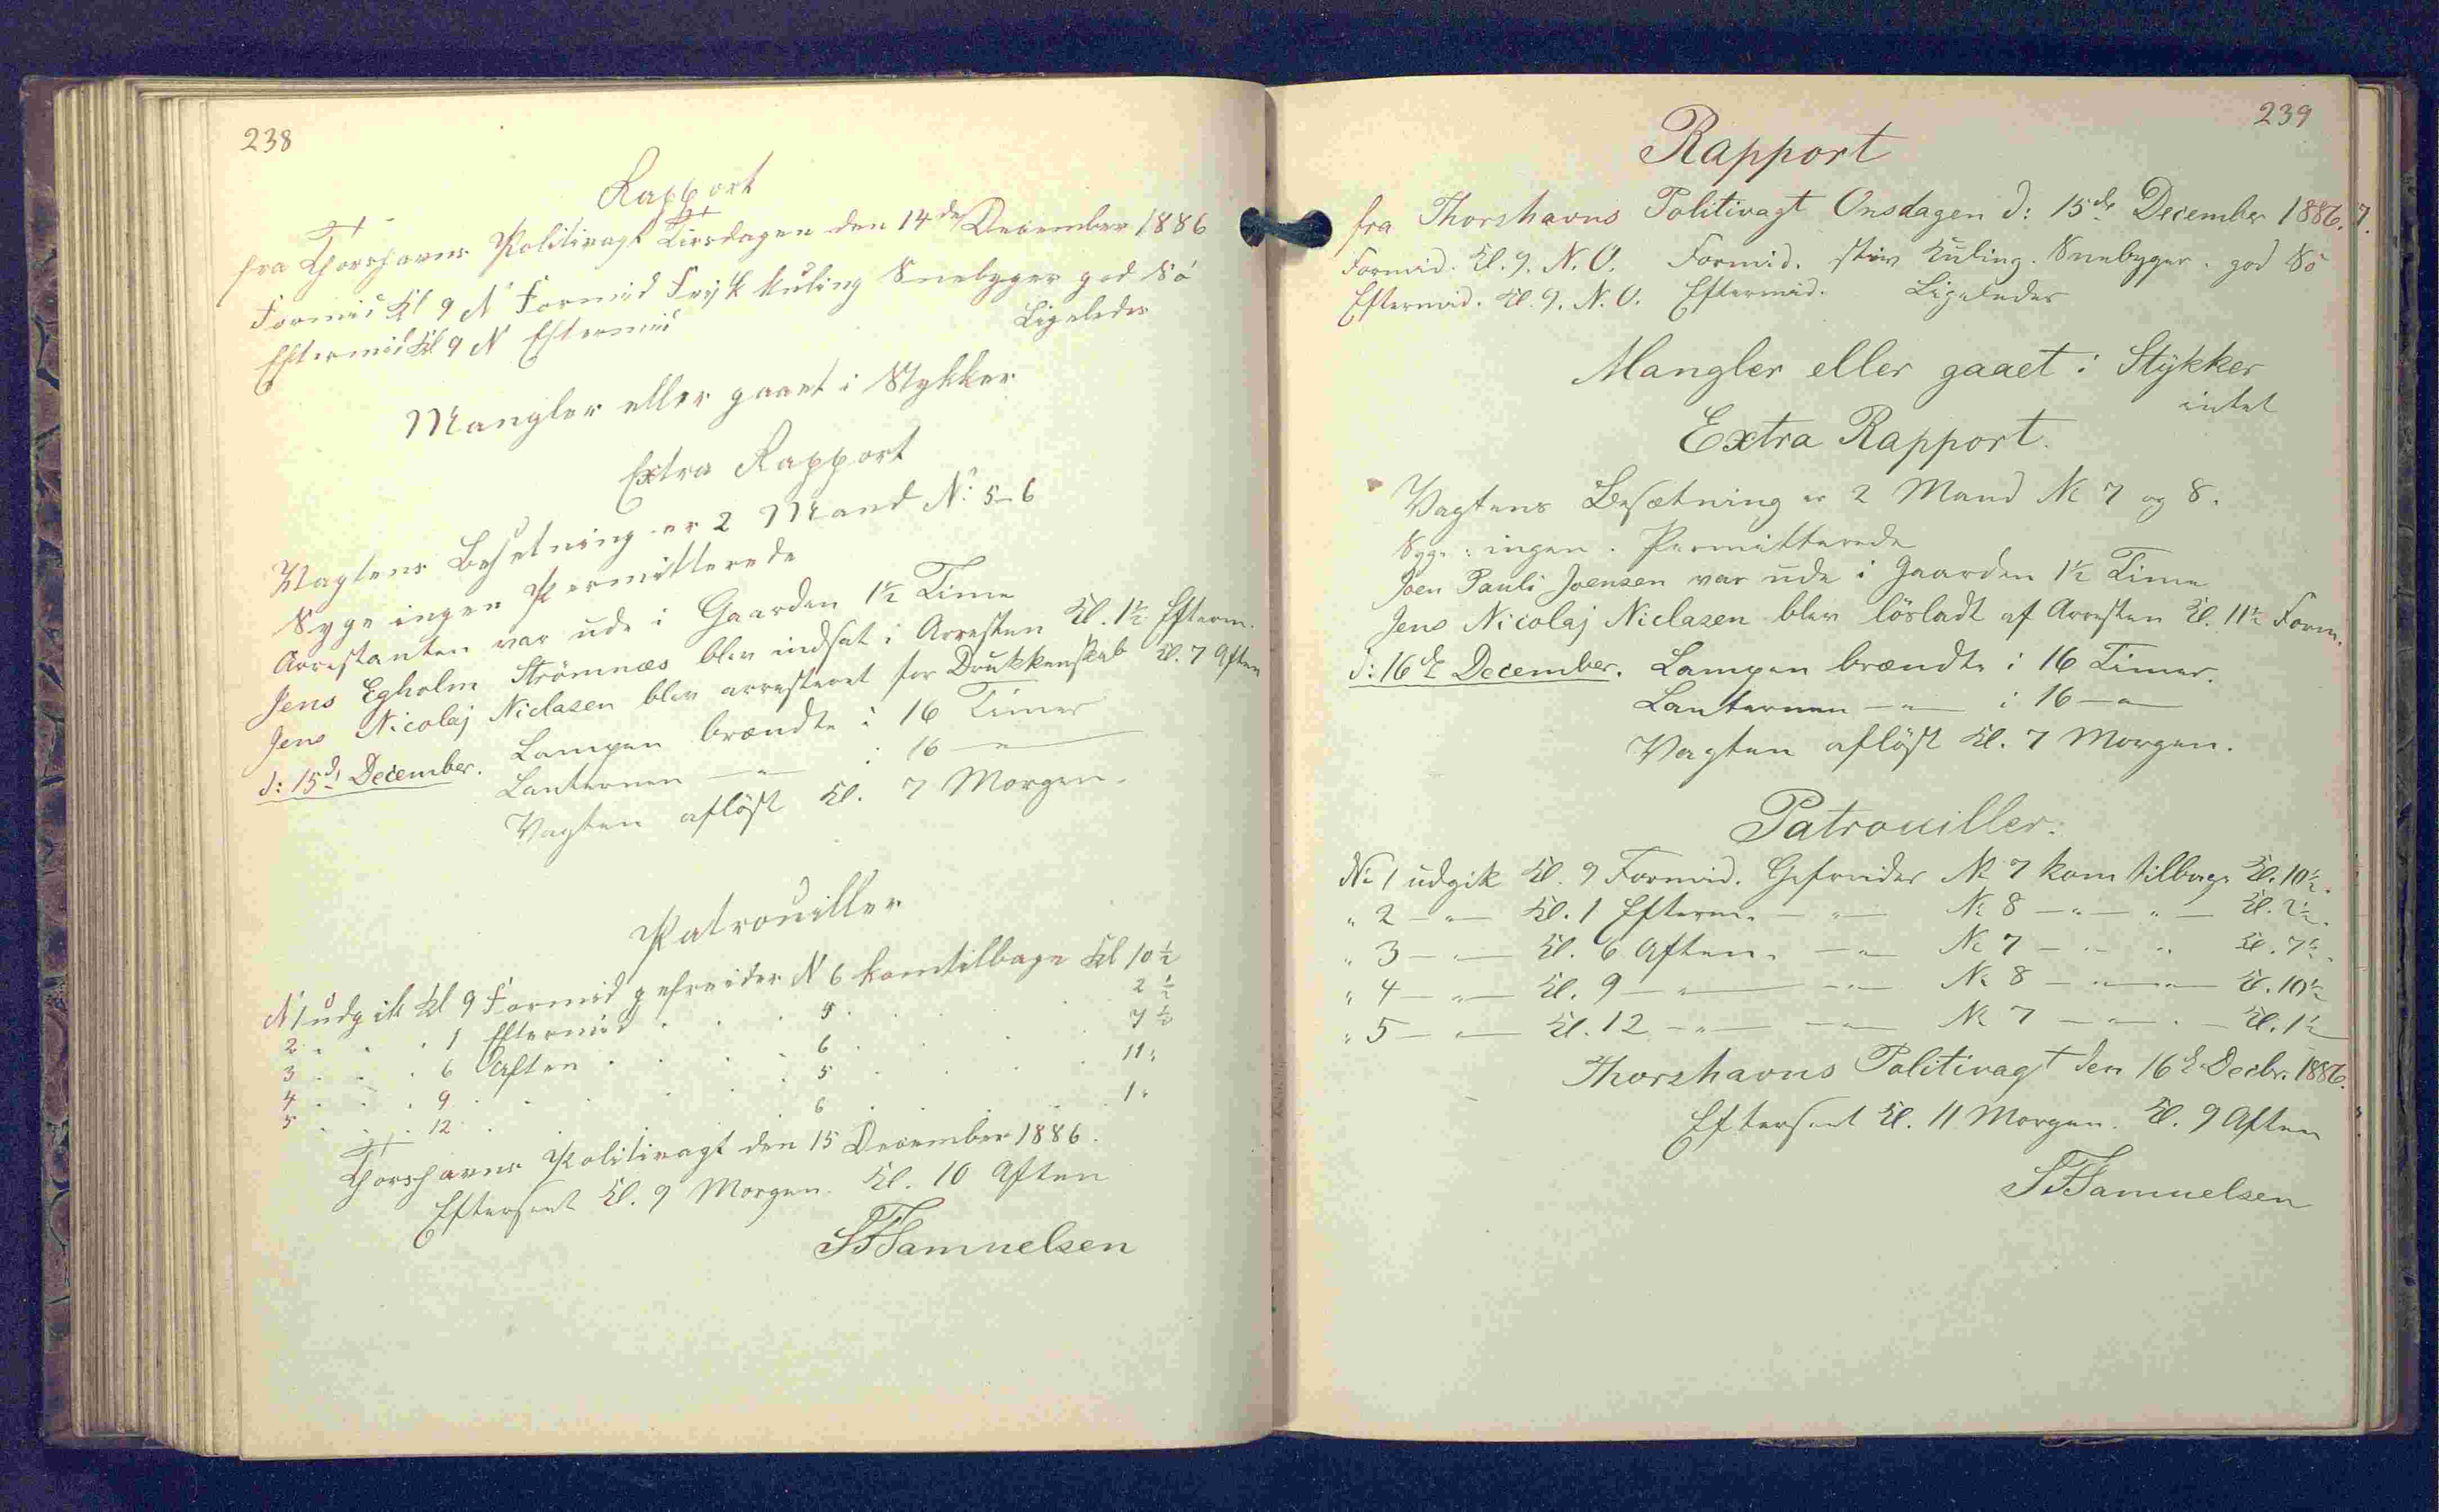 238
Rapport
fra Thorshavns Politivagt Tirsdagen den 14de December 1886
Formid Kl 9 N Formid Frisk Kuling Snebyger god Sö
Eftermid Kl 9 N Eftermid Ligeledes
Mangler eller gaaet i Stykker
Extra Rapport
Vagtens Besetning er 2 Mand No 5-6
Syge ingen Permitterede
Arrestanten var ude i Gaarden 1½ Time
Jens Egholm Strömnæs blev indsat i Arresten Kl. 1½ Efterm.
Jens Nicolaj Niclasen blev arresteret for Drukkenskab Kl. 7 Aften
d: 15de December. Lampen brændte i 16 Timer
Lanternen — " — i 16 — " —
Vagten aflöst Kl. 7 Morgen.
Patrouiller
N 1 udgik Kl 9 Formid gefreider N 6 kom tilbage Kl 10½
2 . . . 1 Eftermid . . . 5 . . . 2½
3 . . . 6 Aften . . . 6 . . . 7½
4 . . . 9 . . . 5 . . . 11 "
5 . . . 12 . . . 6 . . . 1 "
Thorshavns Politivagt den 15 December 1886.
Efterseet Kl. 9 Morgen. Kl. 10 Aften
SFSamuelsen
239
Rapport
fra Thorshavns Politivagt Onsdagen d: 15de December 1886.
Formid. Kl. 9. N.O. Formid. stiv Kuling. Snebyger. god Sö
Eftermid. Kl. 9. N.O. Eftermid. Ligeledes
Mangler eller gaaet i Stykker
intet
Extra Rapport.
Vagtens Besætning er 2 Mand No 7 og 8.
Syge: ingen. Permitterede
Joen Pauli Joensen var ude i Gaarden 1½ Time
Jens Nicolaj Niclasen blev lösladt af Arresten Kl. 11½ Form.
d: 16de December. Lampen brændte i 16 Timer.
Lanternen — " — i 16 — " —
Vagten aflöst Kl. 7 Morgen.
Patrouiller.
No 1 udgik Kl. 9 Formid. Gefreider No 7 kom tilbage Kl. 10½.
" 2 — " — Kl. 1 Efterm. — " — No 8 — " — " — Kl. 2½.
" 3 — " — Kl. 6 Aften. — " — No 7 — " — " Kl. 7½.
" 4 — " — Kl. 9 — " — — " — No 8 — " — " — Kl. 10½
" 5 — " — Kl. 12 — " — — " — No 7 — " — " — Kl. 1½
Thorshavns Politivagt den 16de Decbr. 1886.
Efterseet Kl. 11 Morgen. Kl. 9 Aften
SFSamuelsen